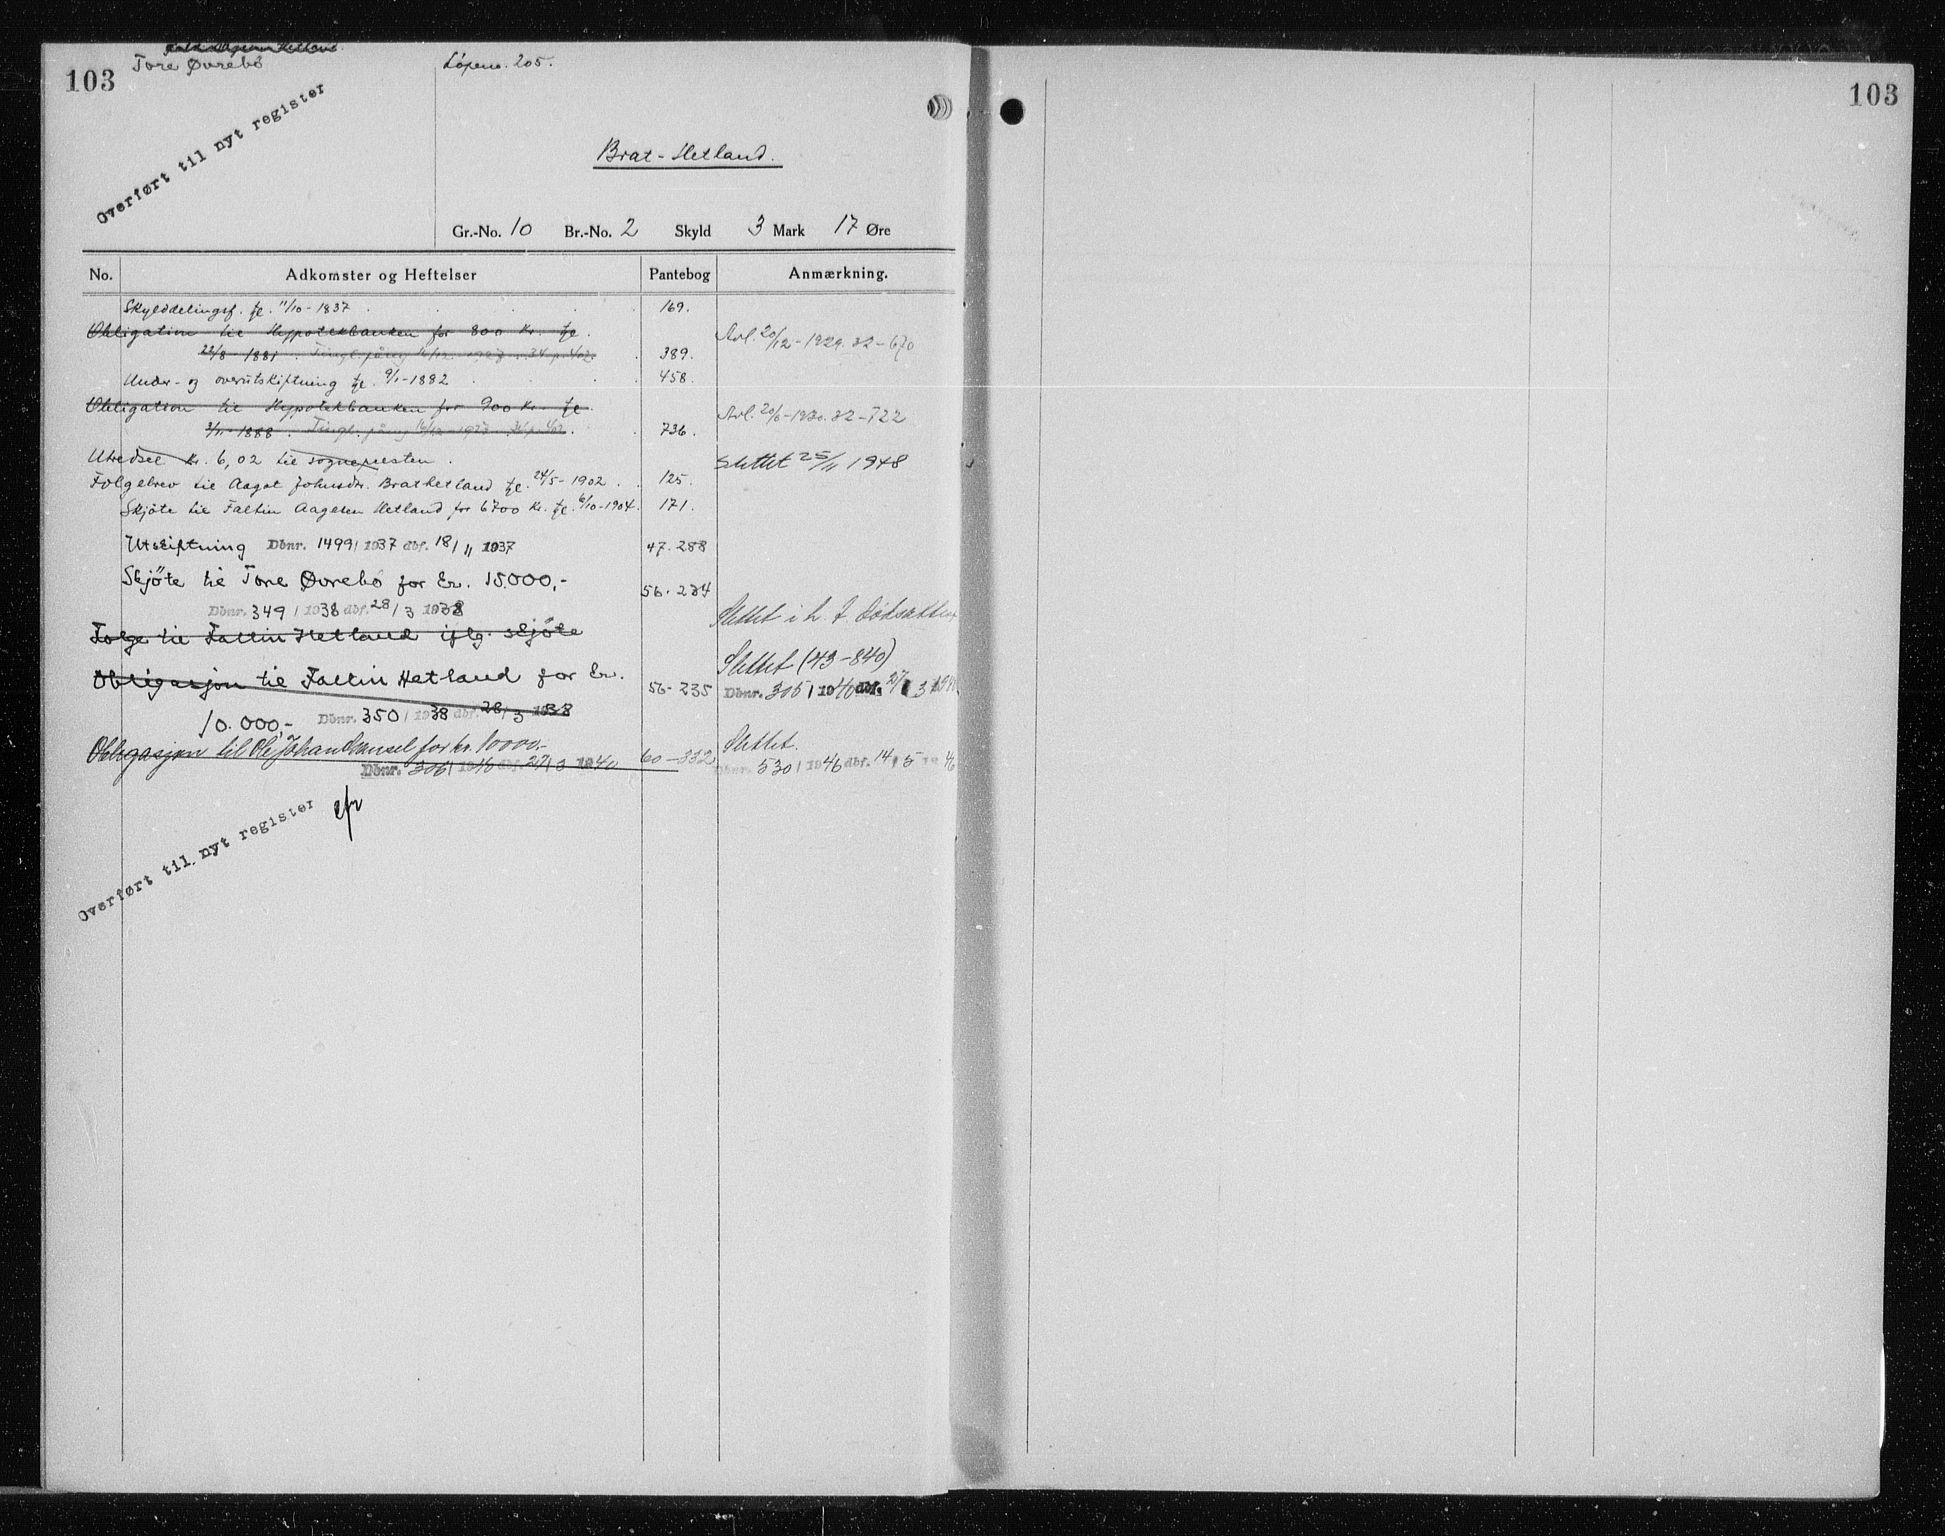 103
Faltin Aagesen Hetland.
Tore Øvrebö
Löpenr. 205.
Overført til nyt register
Brat-Hetland.
Gr.-No. 10 Br.-No. 2 Skyld 3 Mark 17 Øre
No. Adkomster og Heftelser Pantebog Anmærkning.
Skylddelingsf. tgl. 11/10-1837 169.
Obligation til Hypotekbanken for 800 Kr. tgl.
22/8-1881. Tingl. påny 16/12-1927. 34 p. 402. 389. Avl. 20/12-1929. 32-670
Under- og overutskiftning tgl. 9/1-1882 458.
Obligation til Hypotekbanken for 900 Kr. tgl.
3/11-1888. Tingl. påny 16/12-1927. 34 p. 402. 736. Avl. 20/6-1930. 32-722
Utredsel Kr. 6,02 til sognepresten. Slettet 25/11 1948
Følgebrev til Aagot Johnsdr. Brathetland tgl. 24/5-1902. 125.
Skjöte til Faltin Aagesen Hetland for 6700 Kr. tgl. 6/10-1904. 171.
Utskiftning Dbnr. 1499/1937 dbf. 18/11 1937 47-288
Skjöte til Tore Øvrebö for kr. 15000,-
Dbnr. 349/1938 dbf. 28/3 1938 56-234
Folge til Faltin Hetland iflg. skjöte Slettet i h. t. dödsattest
Obligasjon til Faltin Hetland for kr.
10.000,- Dbnr. 350/1938 dbf. 28/3 1938 56-235 Slettet (43-840)
Dbnr. 305/1940 dbf. 27/3 1940
Obligasjon til Ole Johan for kr. 10000,-
Dbnr. 306/1940 dbf. 27/3 1940 60-332 Slettet.
Dbnr. 530/1946 dbf. 14/5 1946
Overført til nyt register
103